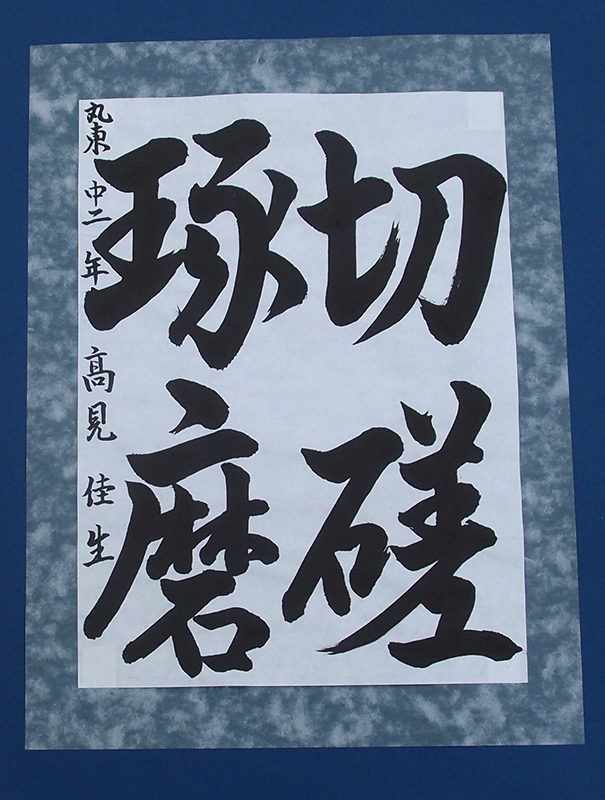 切磋
琢磨
丸東 中二年 髙見 佳生